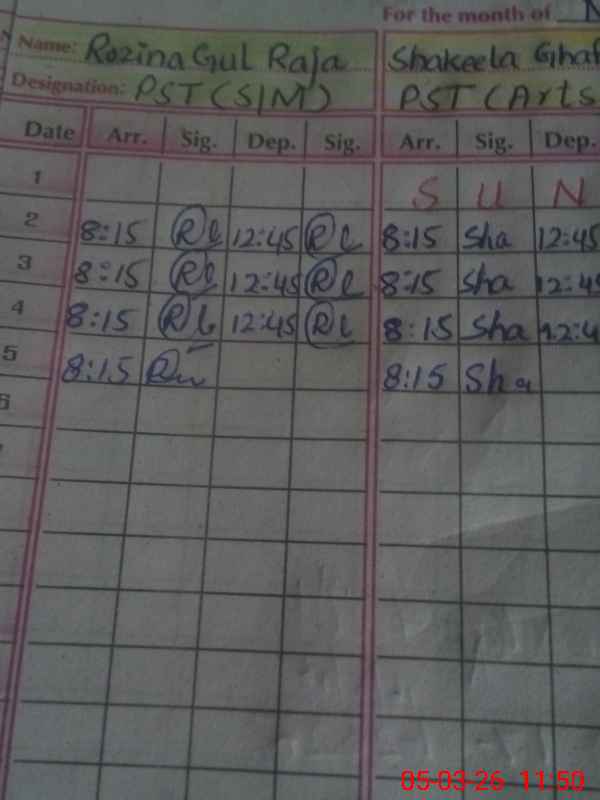 For the month of
Name: Rozina Gul Raja Shakeela Ghaf
Designation: PST (SIM) PST (Arts
Date Arr. Sig. Dep. Sig. Arr. Sig. Dep.
1 S U N
2 8:15 12:45 8:15 Sha 12:45
3 8:15 12:45 8:15 Sha 12:45
4 8:15 12:45 8:15 Sha 12:4
5 8:15 8:15 Sha
6
05-03-26 11:50